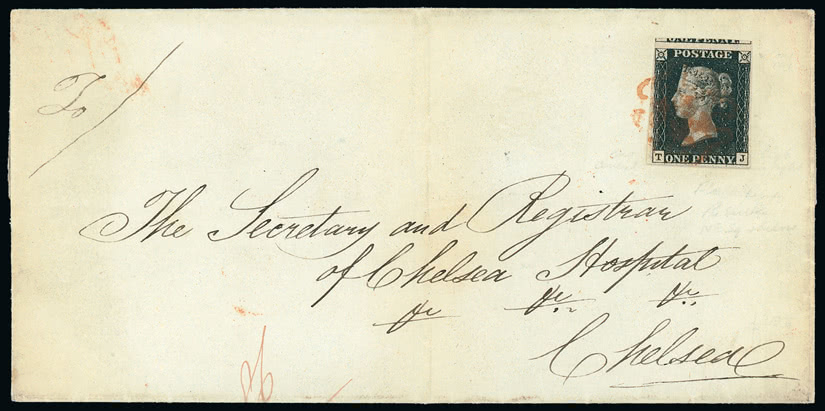 To
ONE PENNY
POSTAGE
T ONE PENNY J
The Secretary and Registrar
of Chelsea Hospital
&c &c &c
Chelsea